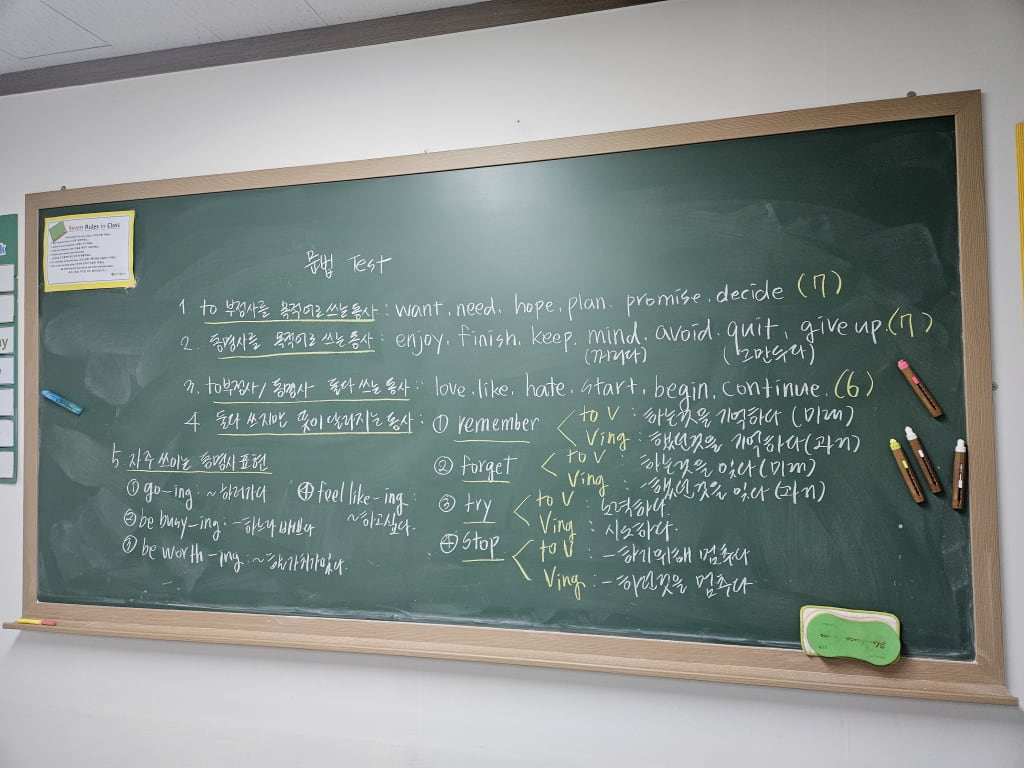 Seven Rules in Class
문법 Test
1 to 부정사를 목적어로 쓰는 동사 : want, need, hope, plan, promise, decide (7)
2. 동명사를 목적어로 쓰는 동사 : enjoy, finish, keep, mind, avoid, quit, give up (7)
(꺼리다) (그만두다)
3. to부정사/동명사 둘다 쓰는 동사 : love, like, hate, start, begin, continue. (6)
4 둘다 쓰지만 뜻이 달라지는 동사 : ① remember < to V : 하는것을 기억하다 (미래)
Ving : 했던것을 기억하다 (과거)
② forget < to V : 하는것을 잊다 (미래)
Ving : ~했던것을 잊다 (과거)
③ try < to V : 노력하다.
Ving : 시도하다.
④ stop < to V : ~하기위해 멈추다
Ving : ~하던것을 멈추다
5 자주 쓰이는 동명사 표현
① go -ing : ~하러가다
② be busy -ing : ~하느라 바쁘다
③ be worth -ing : ~할가치가있다.
④ feel like -ing :
~하고싶다.